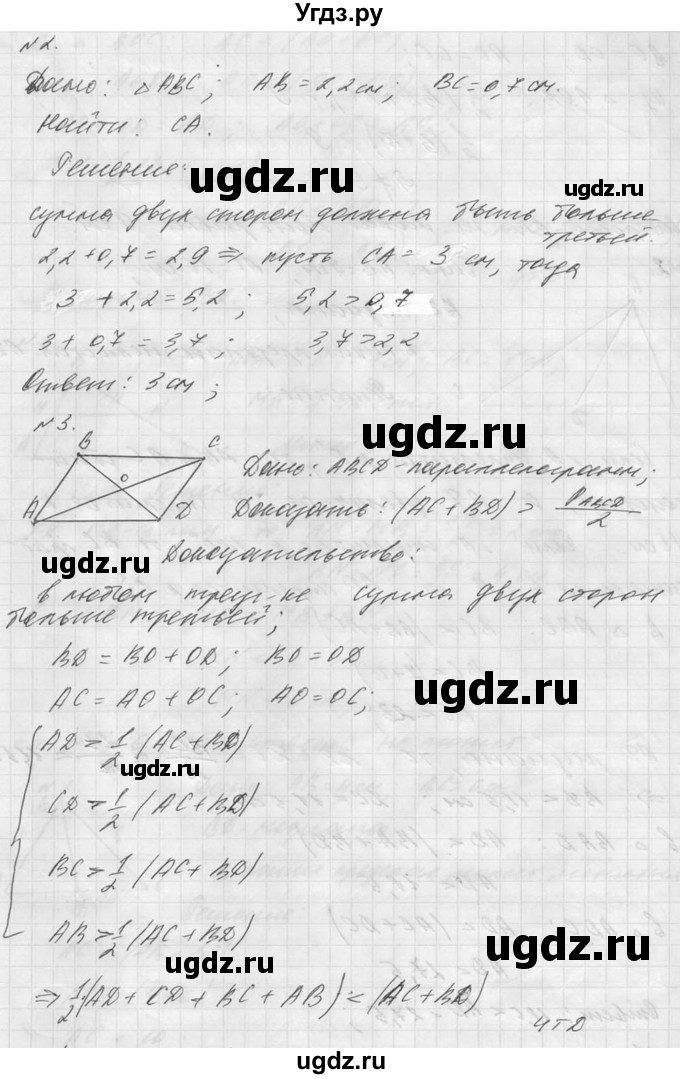 Угдз.ру
№2.
Дано: △ABC; AB = 2,2 см; BC = 0,7 см.
Найти: CA.
Решение:
ugdz.ru
сумма двух сторон должена быть больше
третьей.
2,2 + 0,7 = 2,9 ⇒ пусть CA = 3 см, тогда
ugdz.ru
3 + 2,2 = 5,2; 5,2 > 0,7
3 + 0,7 = 3,7; 3,7 > 2,2
Ответ: 3 см;
ugdz.ru
№3.
B C
O
A D
Дано: ABCD - параллелограмм;
Доказать: (AC + BD) > P ABCD / 2
ugdz.ru
Доказательство:
в любом треуг-ке сумма двух сторон
больше третьей;
BD = BO + OD; BO = OD
AC = AO + OC; AO = OC;
ugdz.ru
AD > 1/2 (AC + BD)
ugdz.ru
CD > 1/2 (AC + BD)
BC > 1/2 (AC + BD)
AB > 1/2 (AC + BD)
ugdz.ru
ugdz.ru
⇒ 1/2 (AD + CD + BC + AB) < (AC + BD)
ugdz.ru
чтд
ugdz.ru